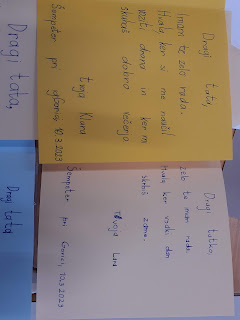 Dragi tata,
imam te zelo rada.
Hvala, ker si me naučil
voziti drona in ker m
skuhaš dobro večerjo
tvoja Klara
Šempeter pri Gorici, 10.3.2023
Dragi tatko,
zelo te mam rada.
Hvala ker vsak dan
skrbiš zame.
Tvoja Lara
Šempeter pri Gorici, 10.3.2023
Dragi tata,
Dragi tata